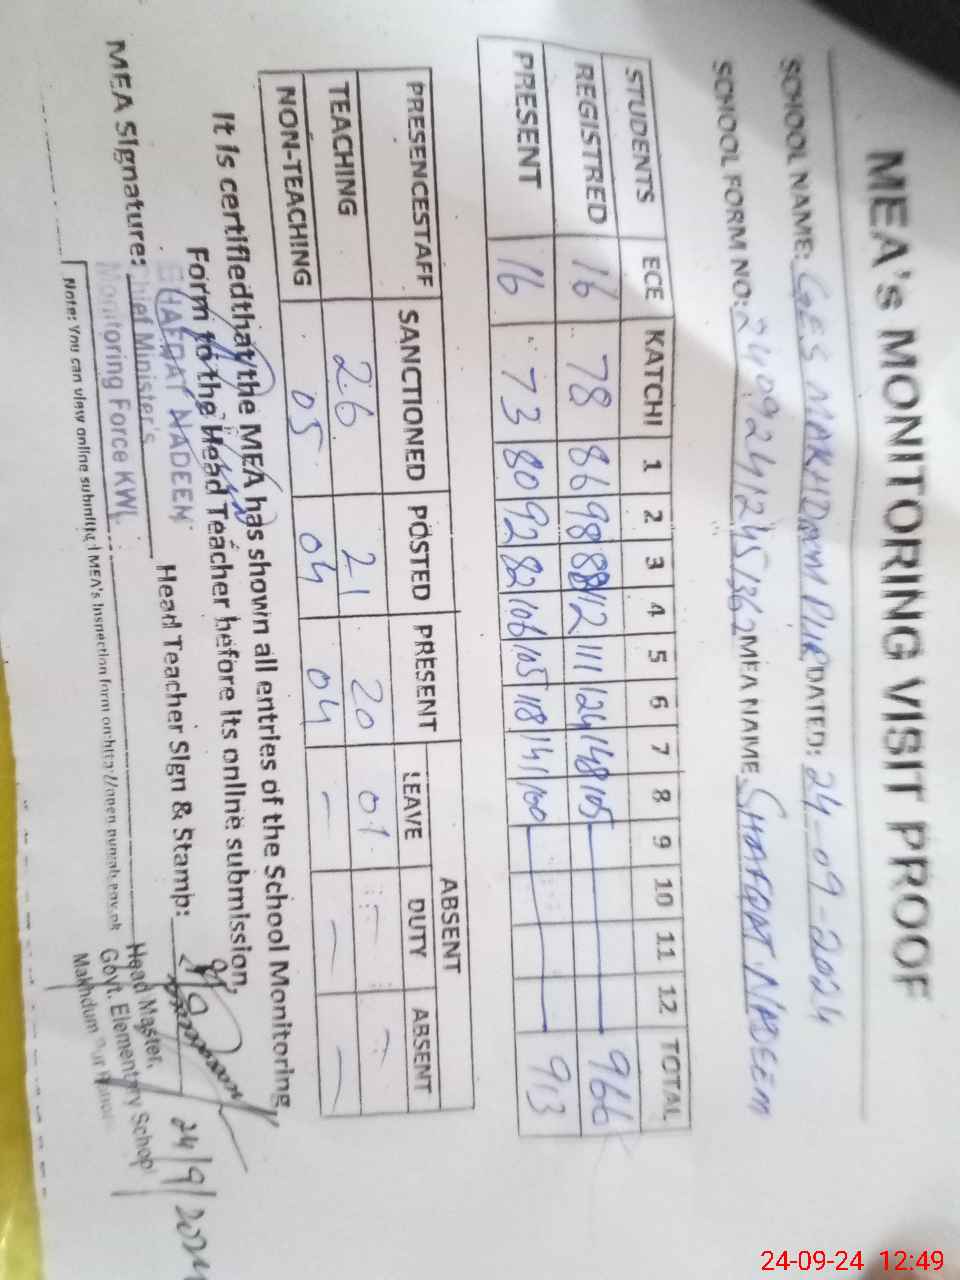 MEA's MONITORING VISIT PROOF
SCHOOL NAME: GES MAKHDOOM PUR DATED: 24-09-2024
SCHOOL FORM NO: 24092412451362 MEA NAME SHAFQAT NADEEM
STUDENTS ECE KATCHI 1 2 3 4 5 6 7 8 9 10 11 12 TOTAL
REGISTRED 16 78 86 98 88 112 111 124 148 105 966
PRESENT 16 73 80 92 82 106 105 118 141 100 913
ABSENT
PRESENCESTAFF SANCTIONED POSTED PRESENT LEAVE DUTY ABSENT
TEACHING 26 21 20 01 - -
NON-TEACHING 05 04 04 - - -
It is certifiedthat the MEA has shown all entries of the School Monitoring
Form to the Head Teacher before its online submission,
SHAFQAT NADEEM
MEA Signature: Head Teacher Sign & Stamp: 24/9/2024
Chief Minister's
Monitoring Force KWL
Head Master,
Govt. Elementary School
Makhdum Pur
Note: You can view online submitted MEA's Inspection form on http://open.punjab.gov.pk
24-09-24 12:49